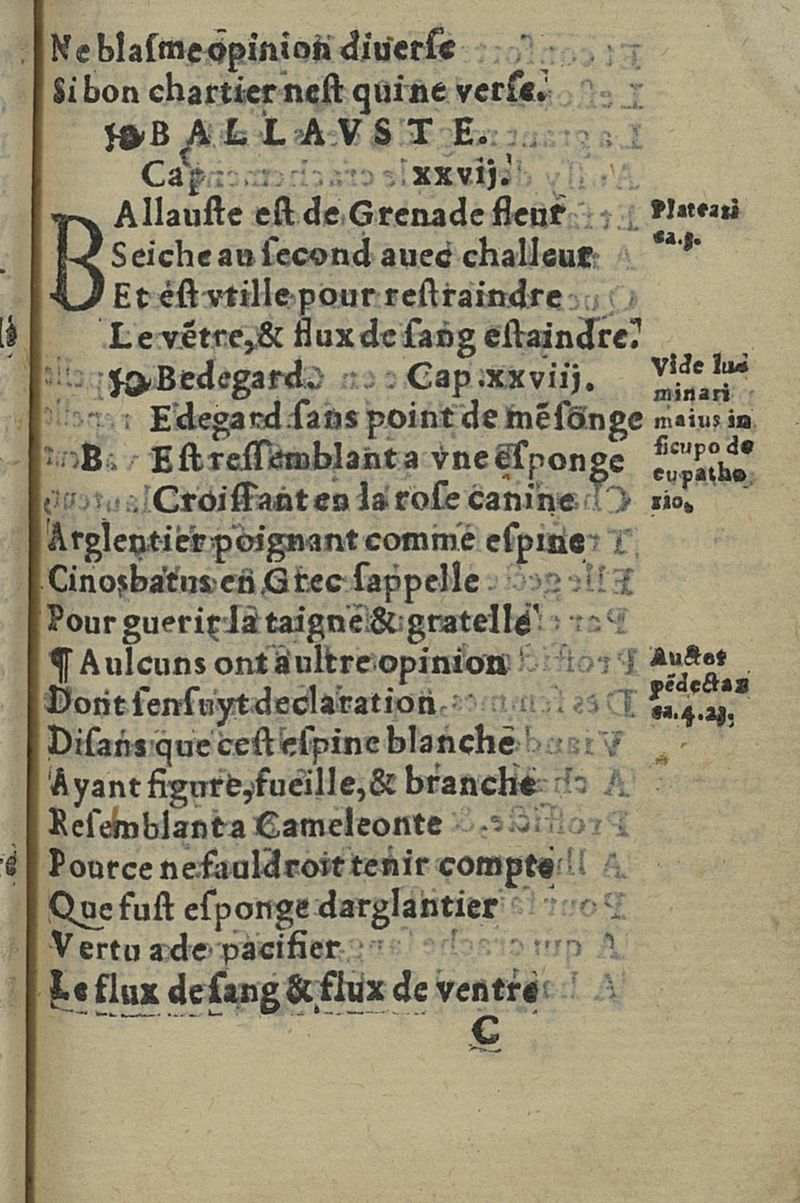 Ne blaſme opinion diuerſe
Si bon chartier neſt qui ne verſe.
BALLAVSTE.
Cap xxvij.
BAllauſte eſt de Grenade fleur
Seiche au ſecond auec challeur
Et eſt vtille pour reſtraindre
Le vẽtre, & flux de ſang eſtaindre.
Plateari
ca.
Bedegard. Cap. xxviij.
BEdegard ſans point de mẽſonge
Eſt reſſemblant a vne eſponge
Croiſſant en la roſe canine
Arglentier poignant comme eſpine
Cinosbatus en Grec ſappelle
Pour guerir la taigne & gratelle
Vide lu
minari
maius in
ſicupo de
eupatho
rio.
¶ Aulcuns ont aultre opinion
Dont ſenſuyt declaration
Diſans que ceſt eſpine blanche
Ayant figure, fueille, & branche
Reſemblant a Cameleonte
Pource ne fauldroit tenir compte
Que fuſt eſponge darglantier
Vertu a de pacifier
Le flux de ſang & flux de ventre
Auctor
pẽdectaꝝ
ca.4.23.
C